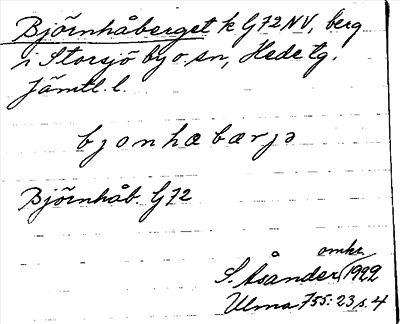 Björnhåberget k G72NV, berg
i Storsjö by o. sn, Hede tg.
Jämtl. l.
bjonhæbærjə
Björnhåb. G72
omkr.
S. Åsander 1922
Ulma 755:23, s. 4